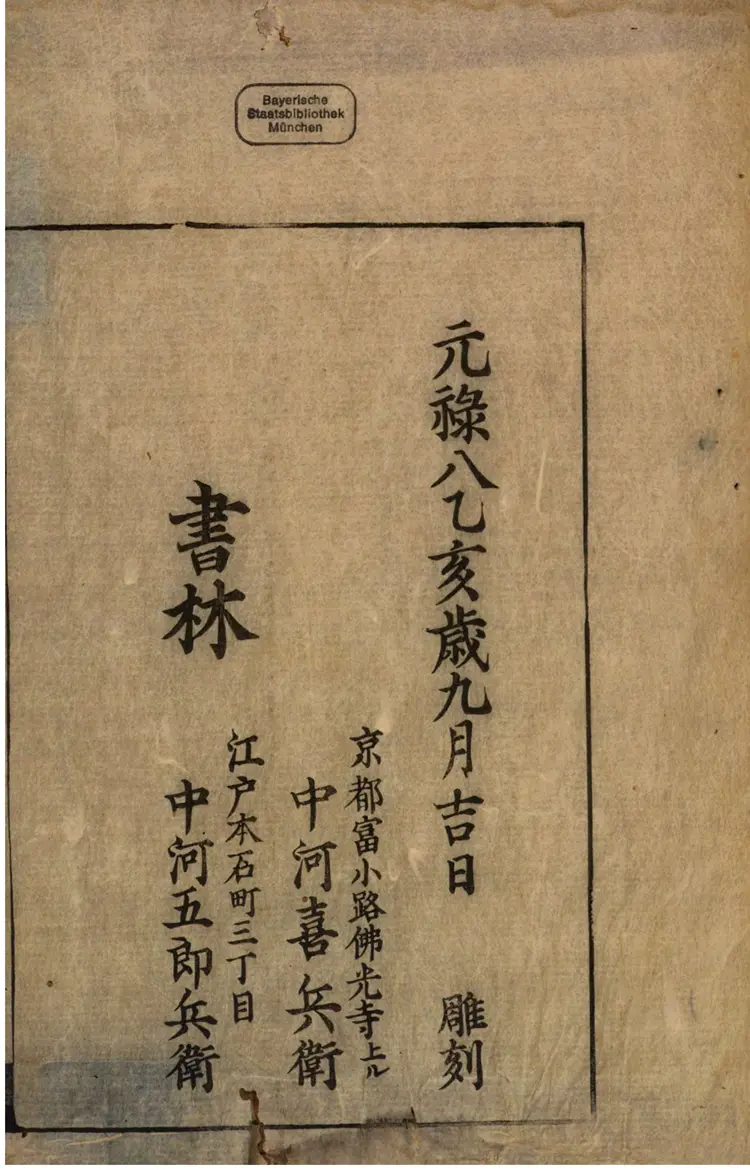 Bayerische
Staatsbibliothek
München
元祿八乙亥歳九月吉日 雕刻
京都富小路佛光寺上ル
中河喜兵衛
江戸本石町三丁目
中河五郎兵衛
書林